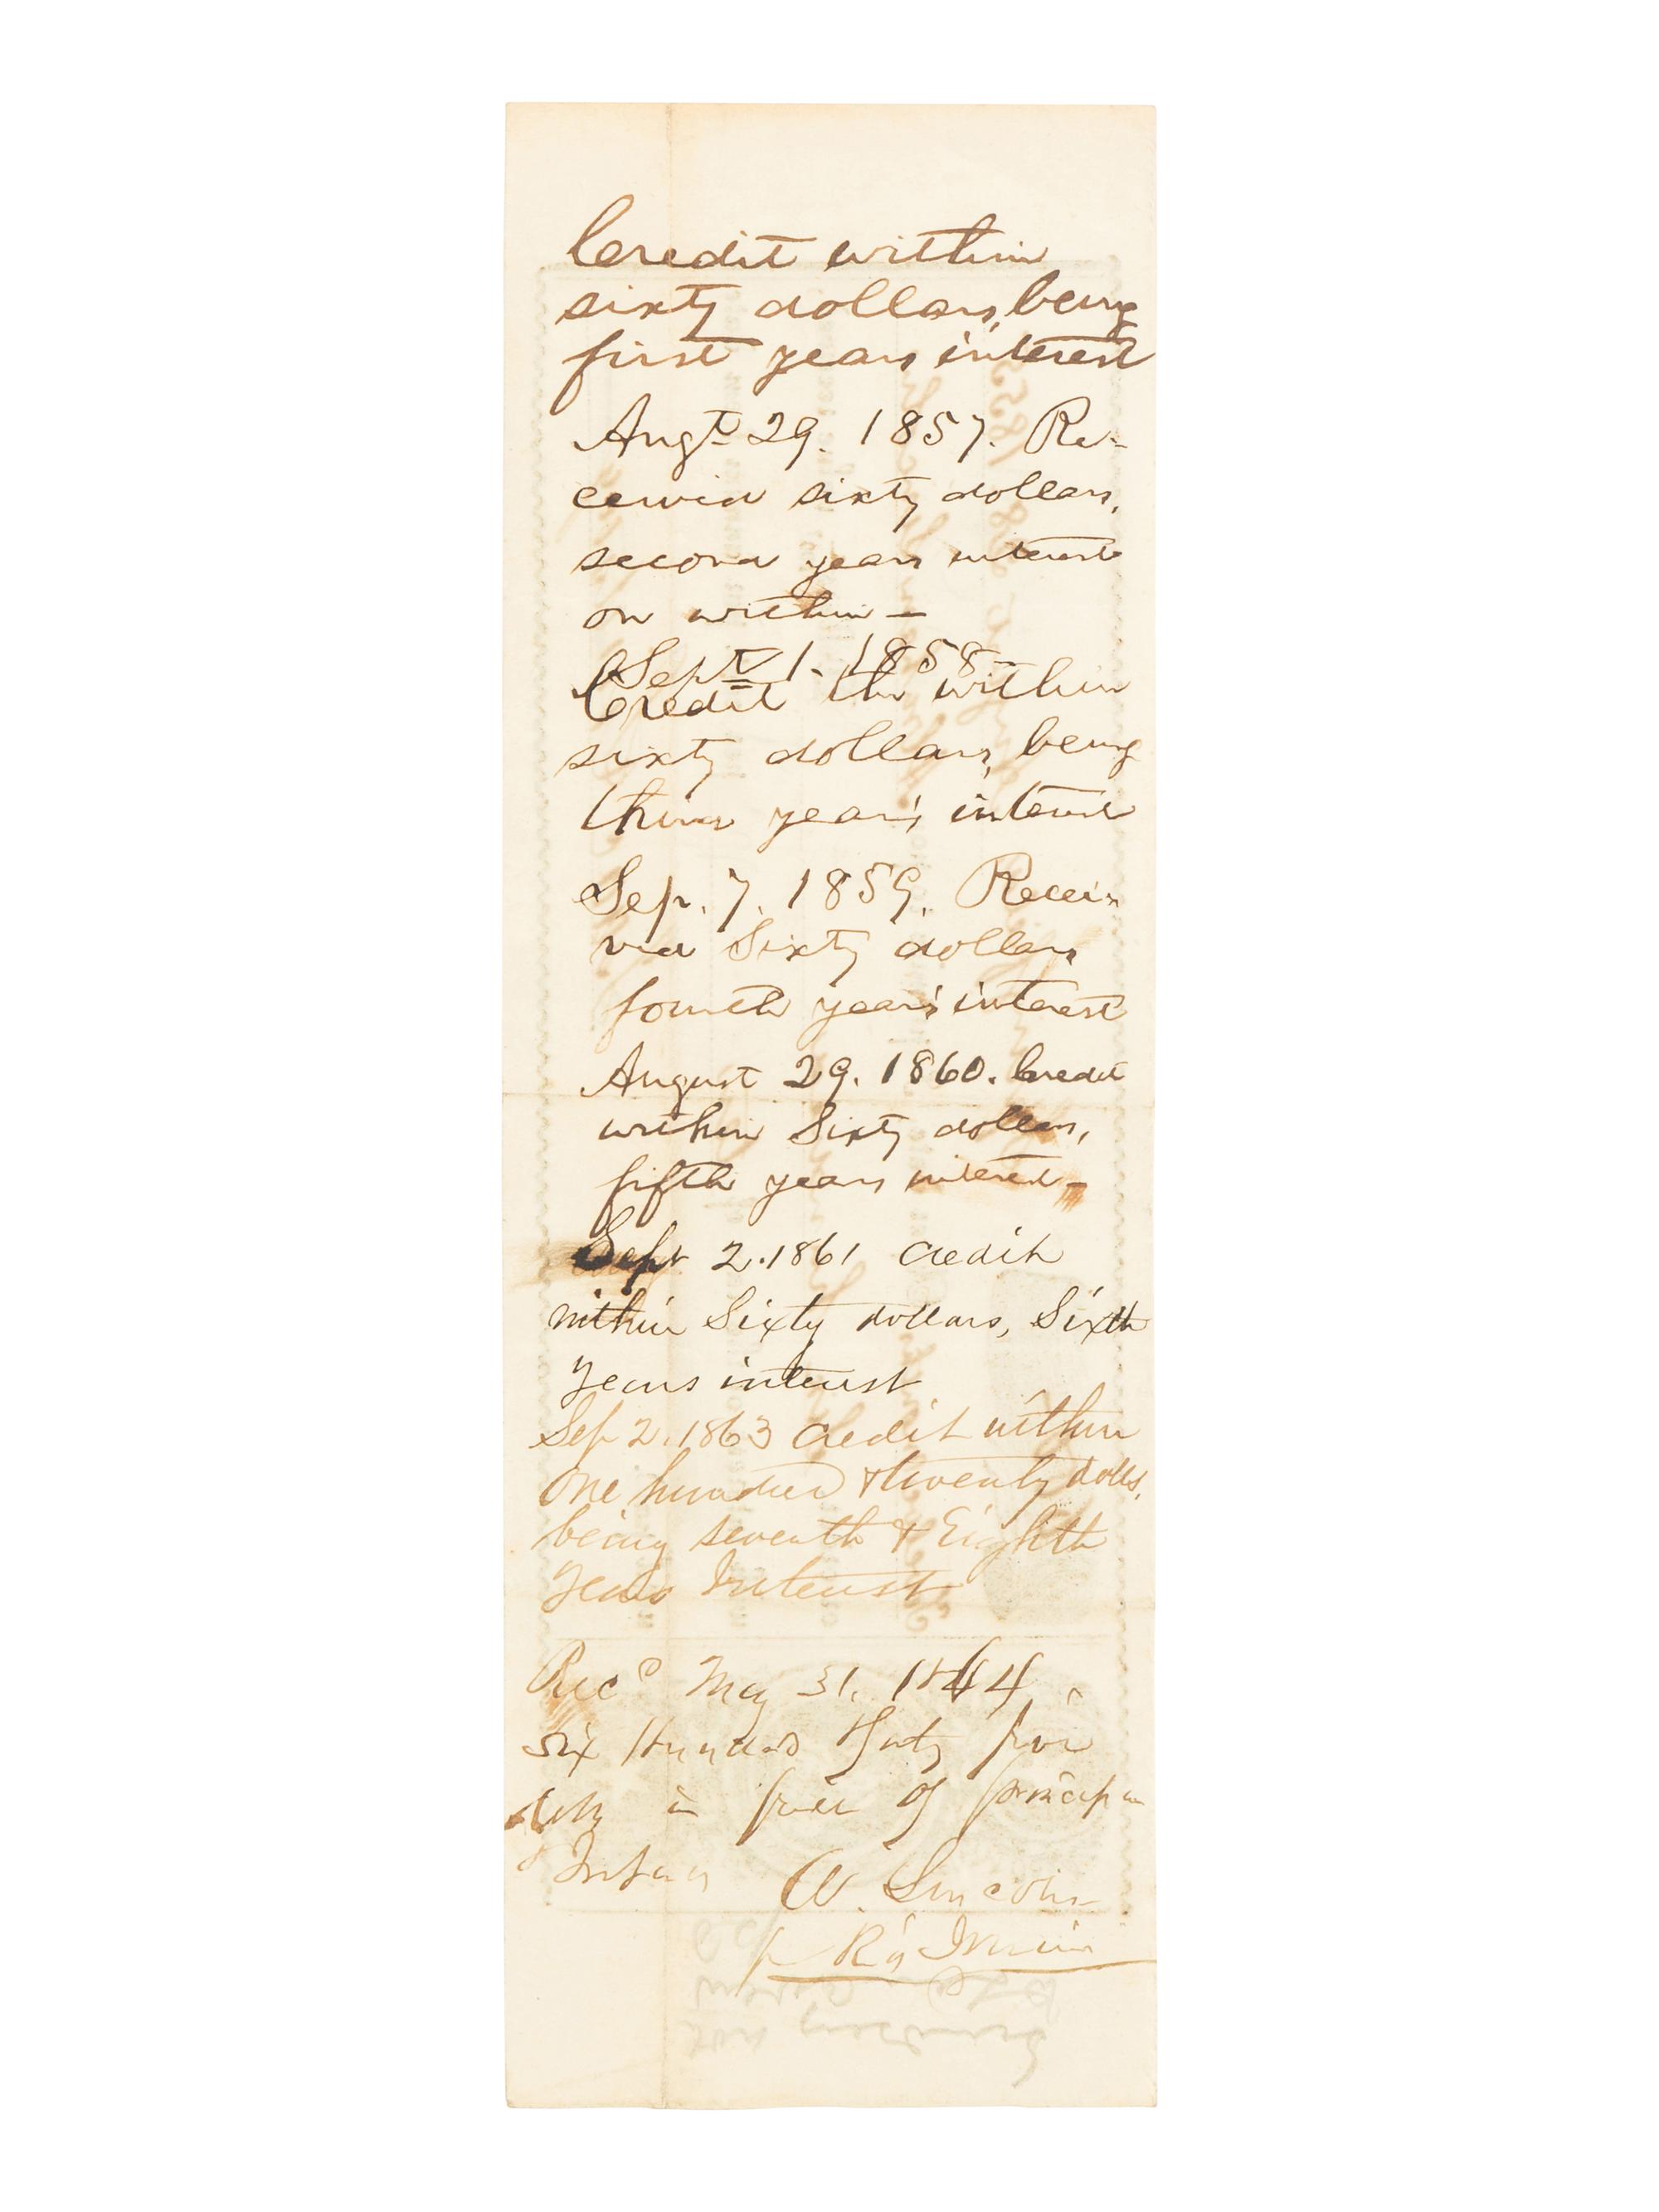 Credit within
sixty dollars, being
first years interest
Augt. 29. 1857. Re-
ceived sixty dollars,
second years interest
on within —
Sept. 1. 1858 —
Credit the within
sixty dollars, being
third year's interest
Sep. 7. 1859. Recei-
ved Sixty dollars
fourth year's interest
August 29. 1860. Credit
within Sixty dollars,
fifth years interest —
Sept 2. 1861 credit
within Sixty dollars, Sixth
years interest
Sep 2. 1863 credit within
One hundred & twenty dolls,
being seventh & Eighth
years Interest
Recd May 31. 1864
six Hundred forty five
in full of
A. Lincoln
p R Irwin